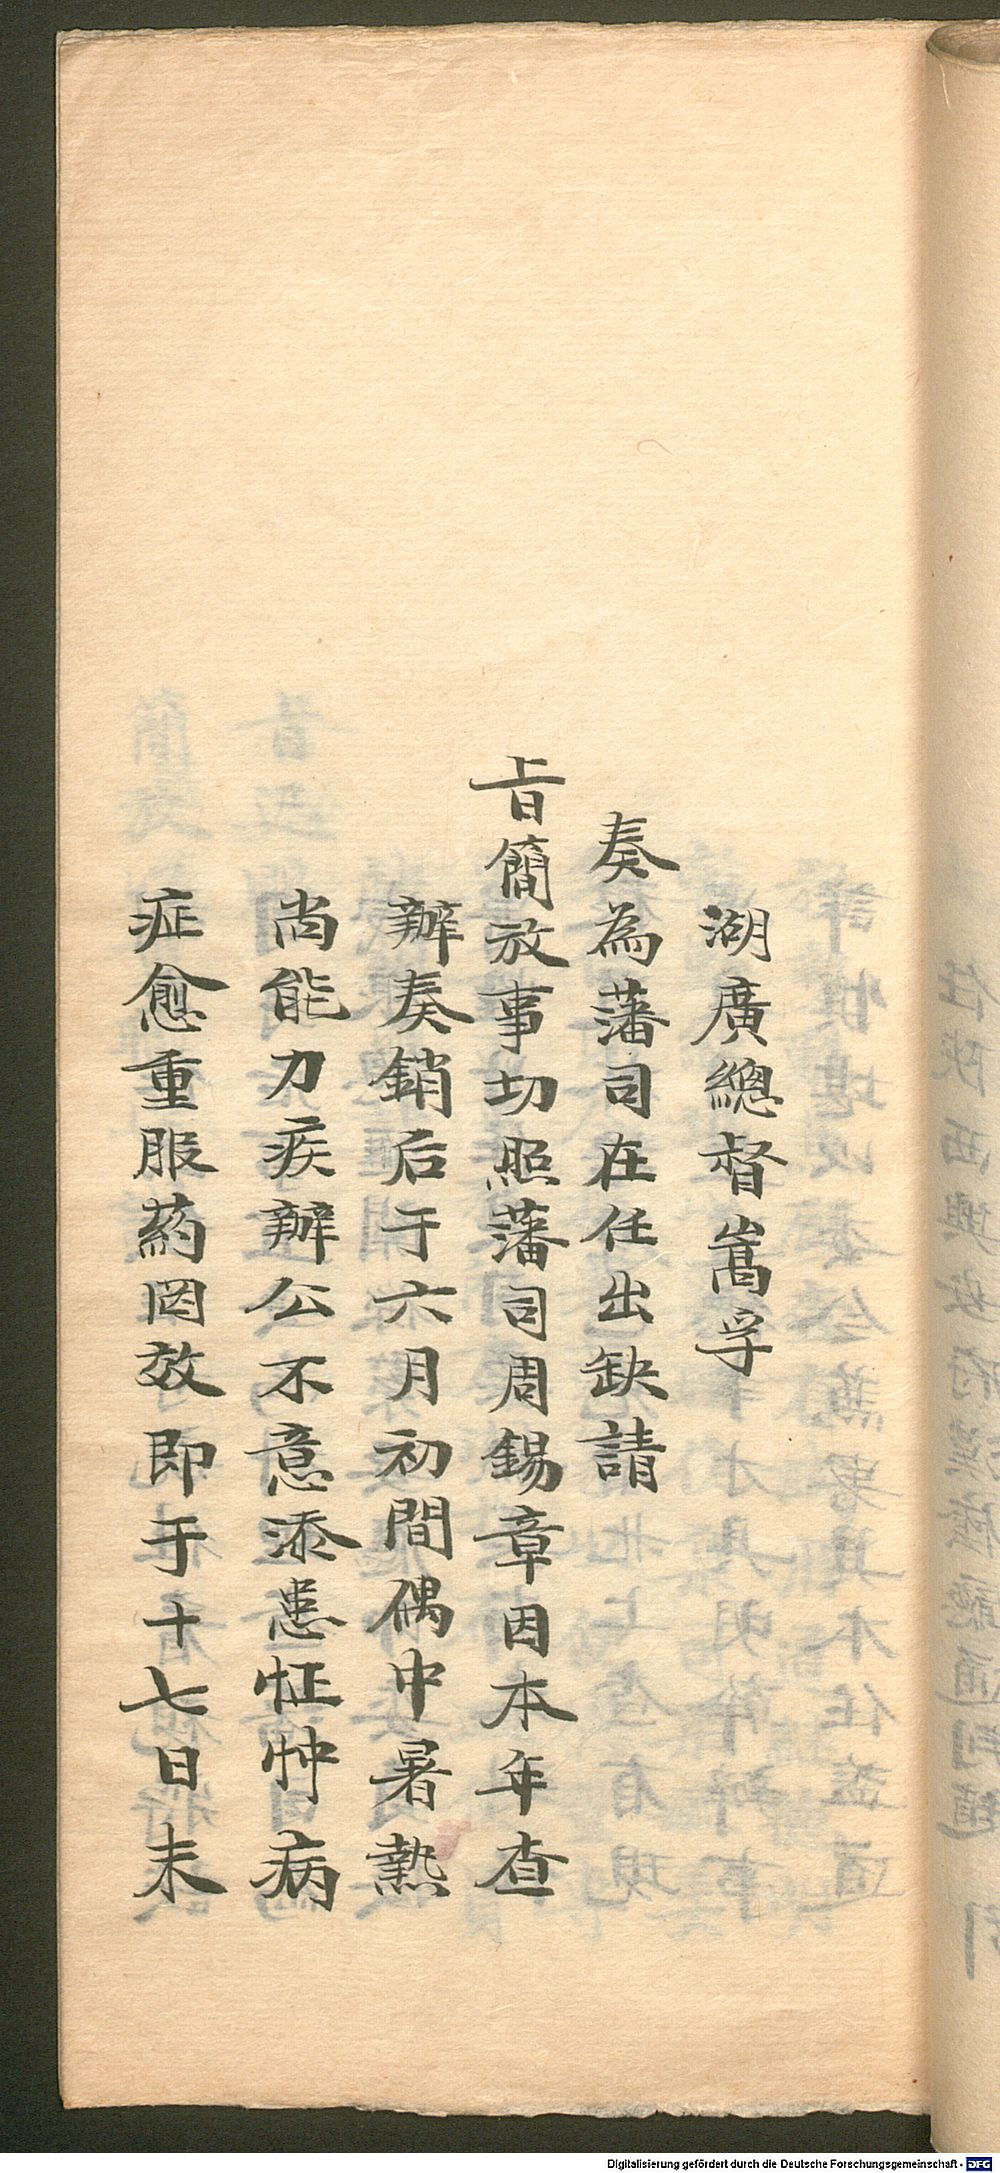 湖廣總督嵩孚
奏為藩司在任出缺請
旨簡放事切照藩司周錫章因本年查
辦奏銷后于六月初間偶中暑熱
尚能力疾辦公不意添患怔忡病
症愈重服葯罔效即于十七日未
Digitalisierung gefördert durch die Deutsche Forschungsgemeinschaft - DFG